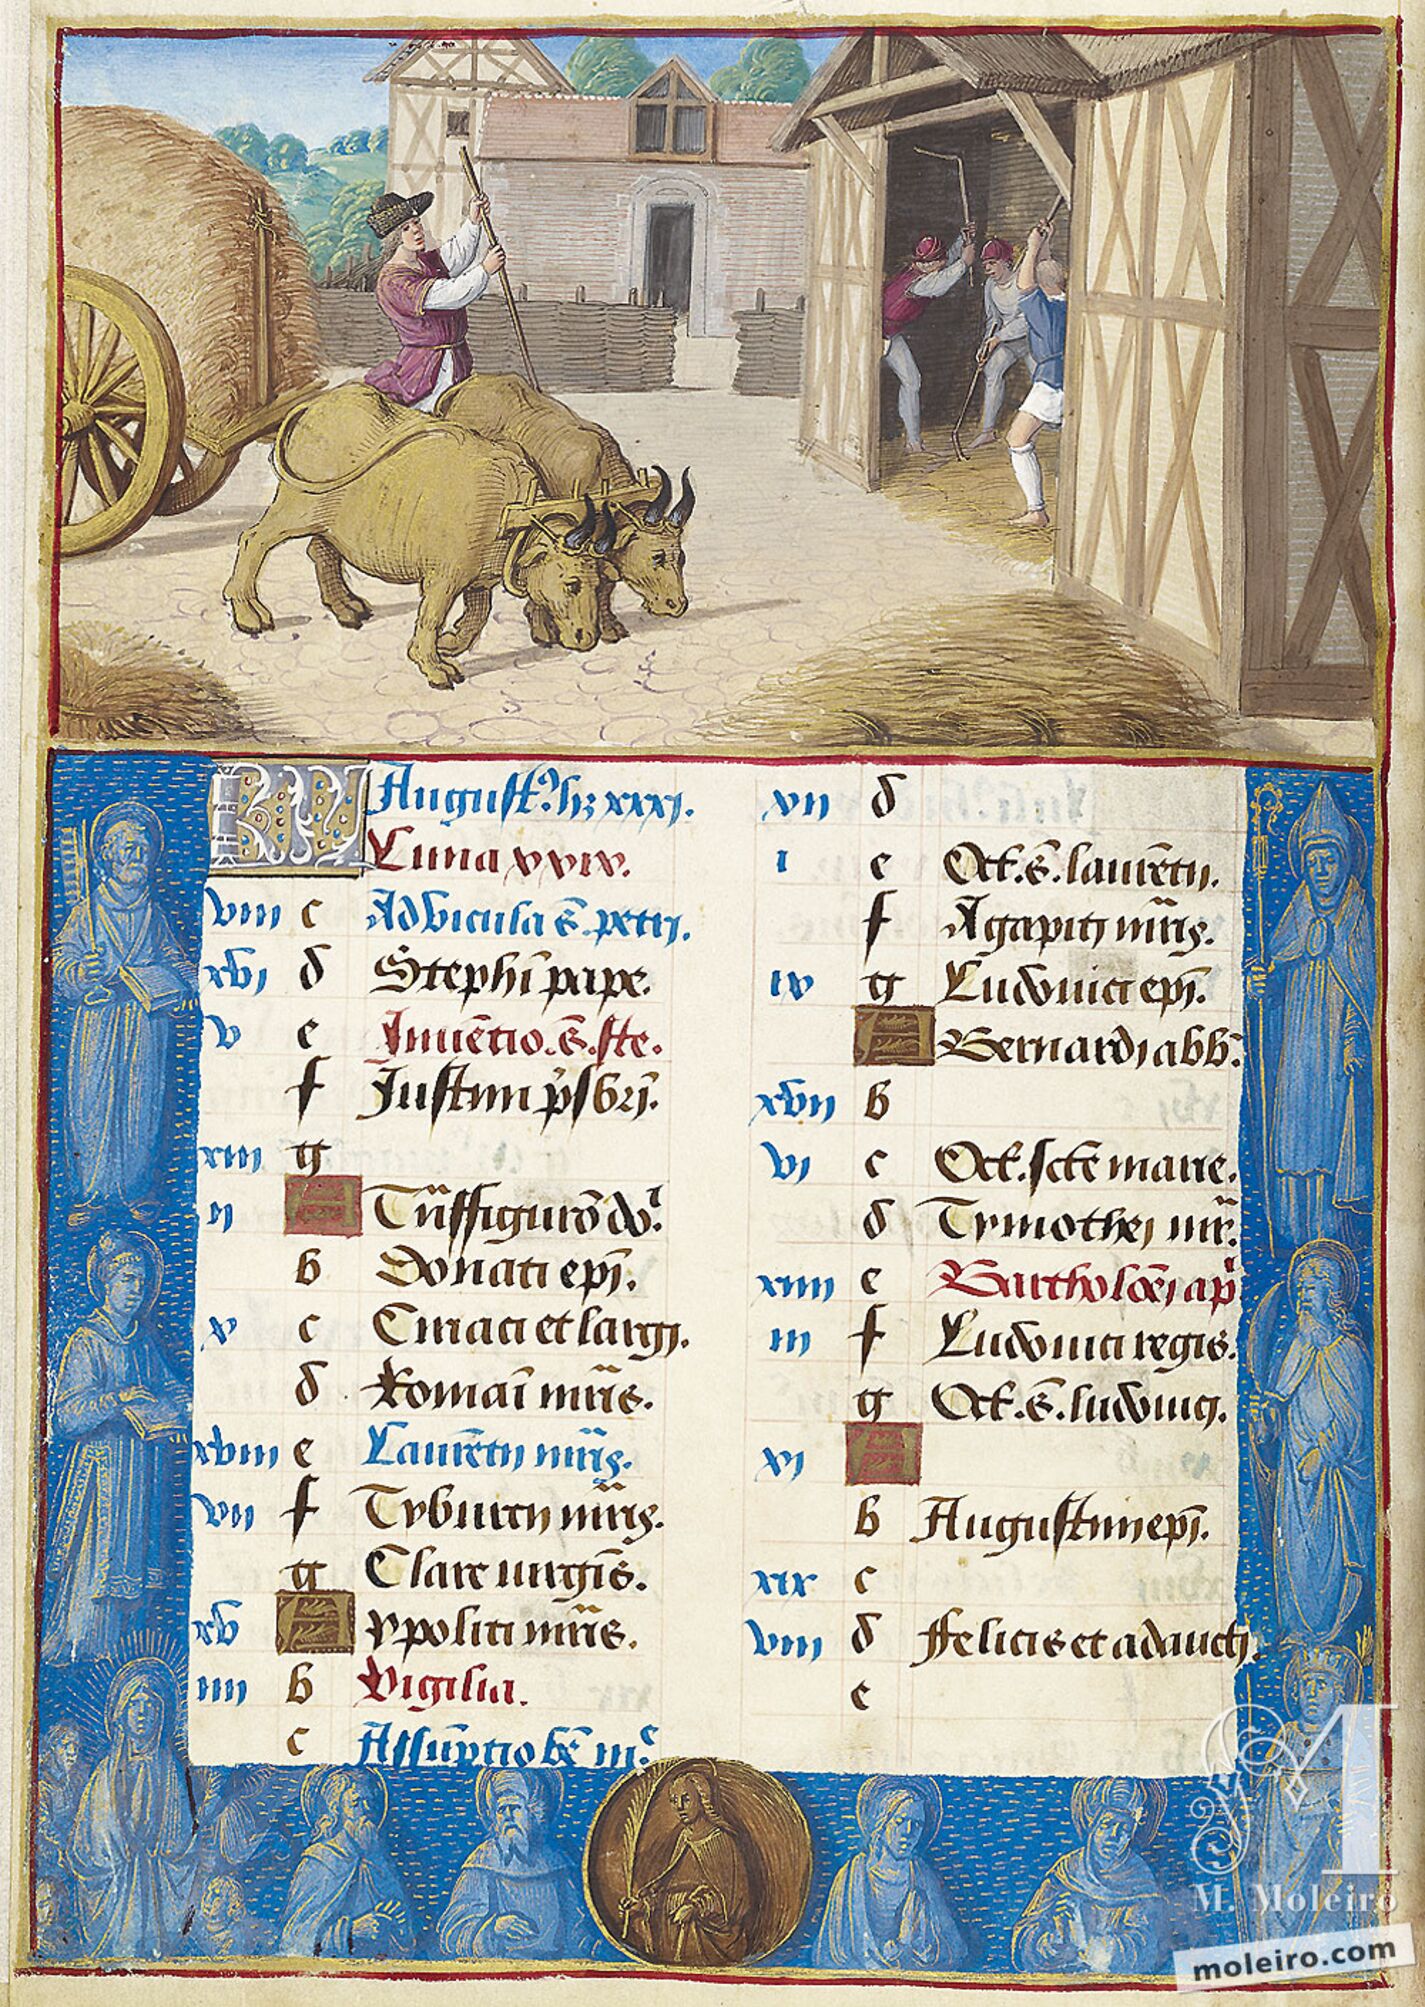 KL Augustꝰ hꝫ xxxi.
Luna xxix.
viii c Ad vicula s̄. petri.
xvi d Stephi pape.
v e Inuētio. s̄. ste.
f Iustini p̄sbr̄i.
xiii g
ii A Trāsfiguro do.
b Donati epī.
x c Ciriaci et largi.
d Romāi mr̄is.
xviii e Laurētii mr̄is.
vii f Tyburcii mr̄is.
g Clare uirgīs.
xv A ypoliti mr̄is.
iiii b Vigilia.
c Assūptio bē m.
xii d
i e Oct. s̄. laurētii.
f Agapiti mr̄is.
ix g Ludouici epī.
A Bernardi abb.
xvii b
vi c Oct. scē marie.
d Tymothei mr̄.
xiiii e Bartholoēi ap
iii f Ludouici regis.
g Oct. s̄. luduici.
xi A
b Augustini epī.
xix c
viii d ffelicis et adaucti.
e
M. Moleiro
moleiro.com